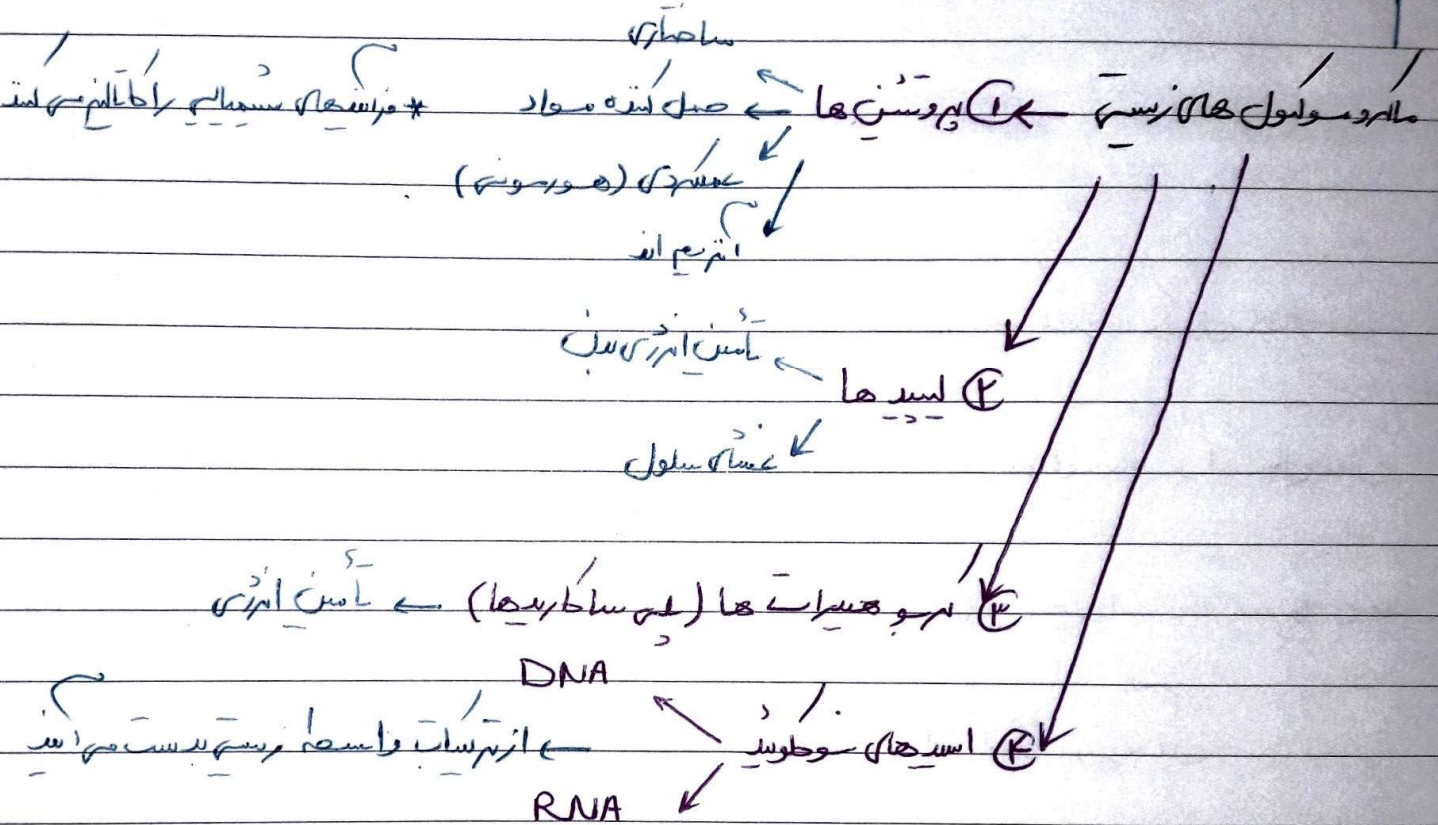 ساختاری
ماکرومولکول های زیستی ← ① پروتئین ها ← حمل کننده مواد * فرآیندهای شیمیایی را کاتالیز می کنند
عملکردی (هورمونی)
آنزیم اند
تأمین انرژی بدن
② لیپید ها
غشای سلول
③ کربوهیدرات ها (پلی ساکاریدها) ← تأمین انرژی
DNA
④ اسیدهای نوکلوئید ← از ترکیبات واسطه زیستی بدست می آیند
RNA